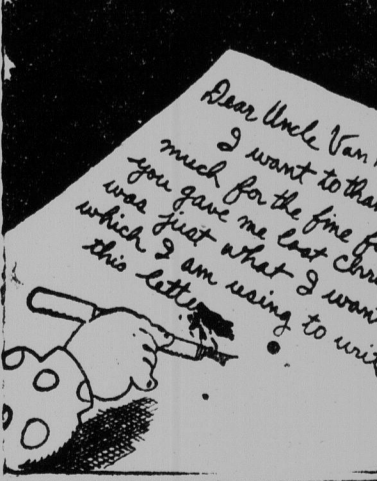 Dear Uncle Van
I want to than
much for the fine f
you gave me last Chri
was just what I want
which I am using to writ
this lette